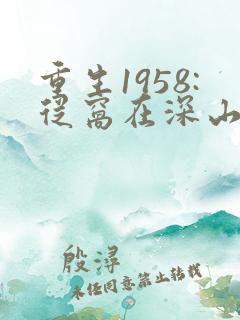 重生1958:
从窝在深山
殷浔
未经同意禁止转载